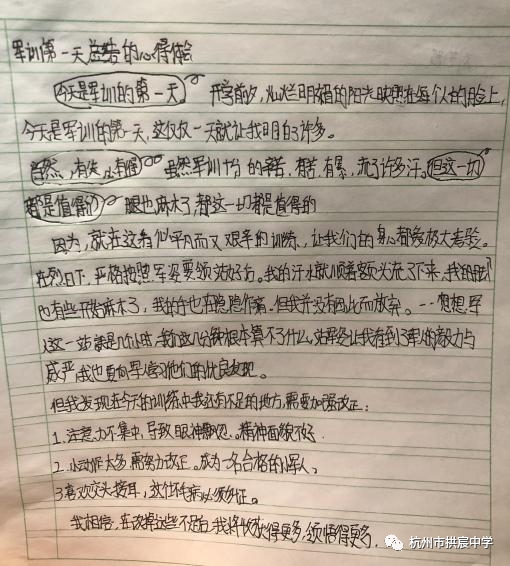 军训第一天总结的心得体验
今天是军训的第一天。开学前夕,灿烂明媚的阳光映照在每个人的脸上,
今天是军训的第一天,这仅仅一天就让我明白了许多。
当然,有失必有得 虽然军训十分的辛苦,有苦、有累,流了许多汗。但这一切
都是值得的 腿也麻木了,都这一切都是值得的
因为,就在这看似平凡而又艰辛的训练,让我们的身心都受极大考验。
在烈日下,严格按照军姿要领站好后。我的汗水就顺着额头流了下来,我的腿
也有些开始麻木了,我的手也在隐隐作痛,但我并没有因此而放弃。--想想军
人这一站就是几个小时,我们这几分钟根本算不了什么,站军姿让我看到了军人的毅力与
威严,我也更向军人学习他们的优良表现。
但我发现在今天的训练中我还有不足的地方,需要加强改正:
1.注意力不集中,导致眼神飘忽。精神面貌不好.
2.小动作太多需努力改正。成为一名合格的小军人、
3.喜欢交头接耳,这个坏毛病必须改正。
我相信,在改掉这些不足后,我将收获得更多,领悟得更多.
杭州市拱宸中学